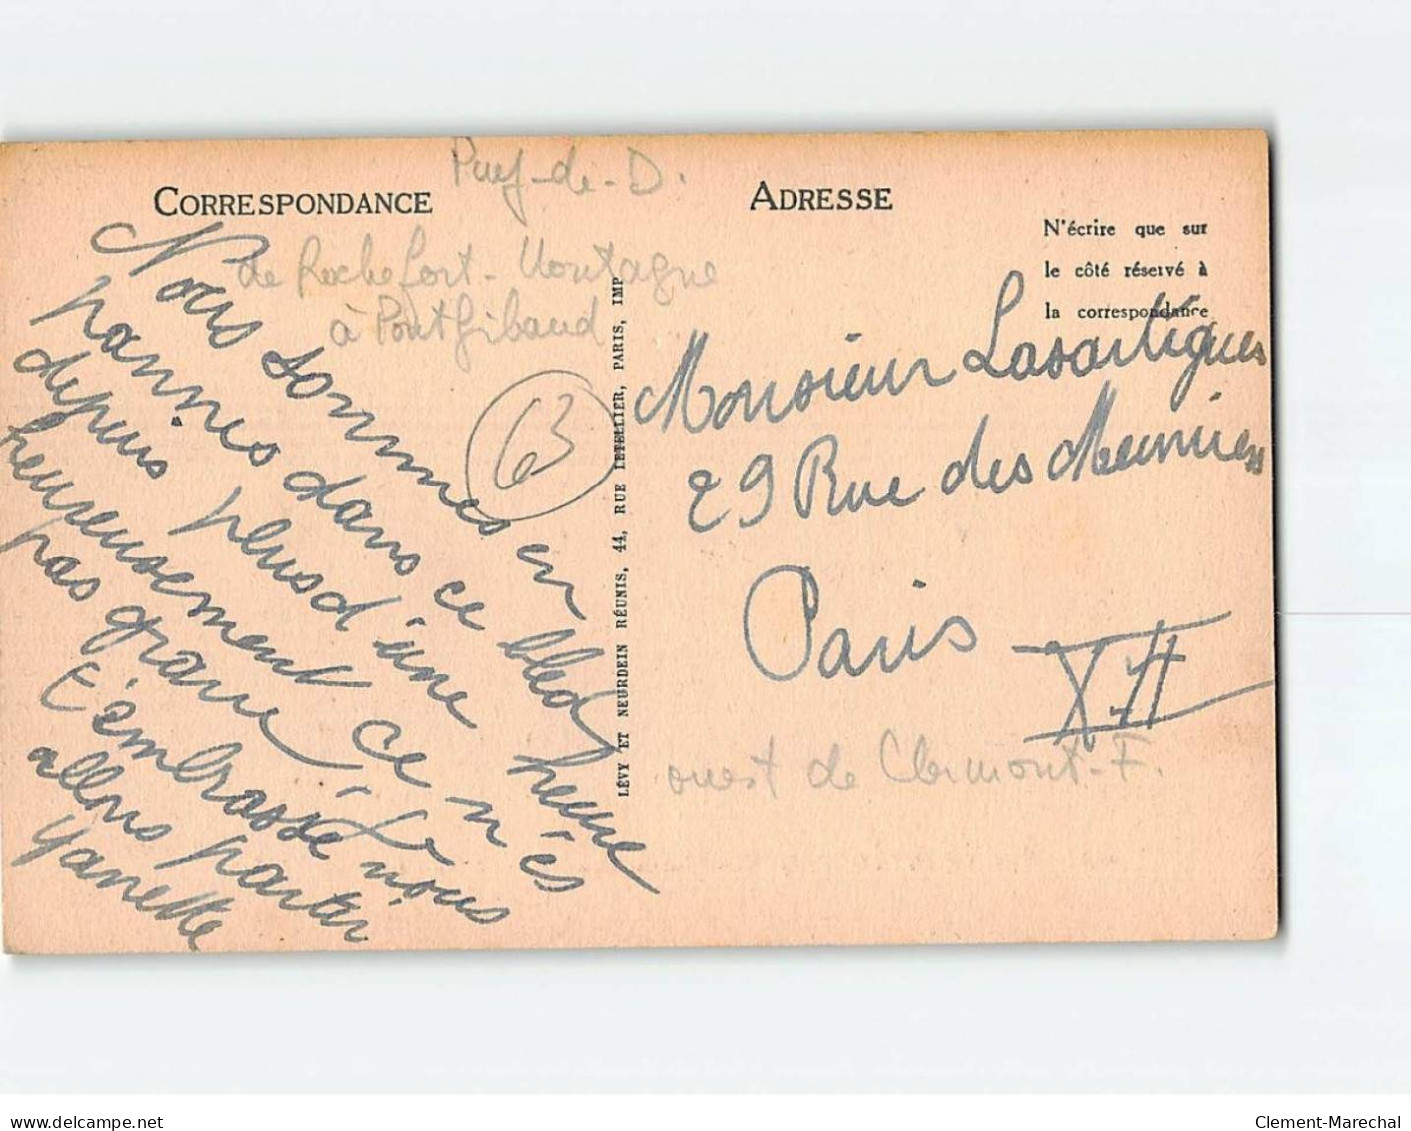 CORRESPONDANCE
Puy-de-D.
de Rochefort-Montagne
à Pontgibaud
63
Nous sommes en
pannes dans ce bled
depuis plus d'une heure
heureusement ce n'es
pas grave. Je
t'embrasse nous
allons partir
Yanette
LÉVY ET NEURDEIN RÉUNIS, 44, RUE LETELLIER, PARIS, IMP
ADRESSE
N'écrire que sur
le côté réservé à
la correspondance
Monsieur Lasartigues
29 Rue des Meuniers
Paris XII
ouest de Clermont-F.
delcampe.net
Clement-Marechal